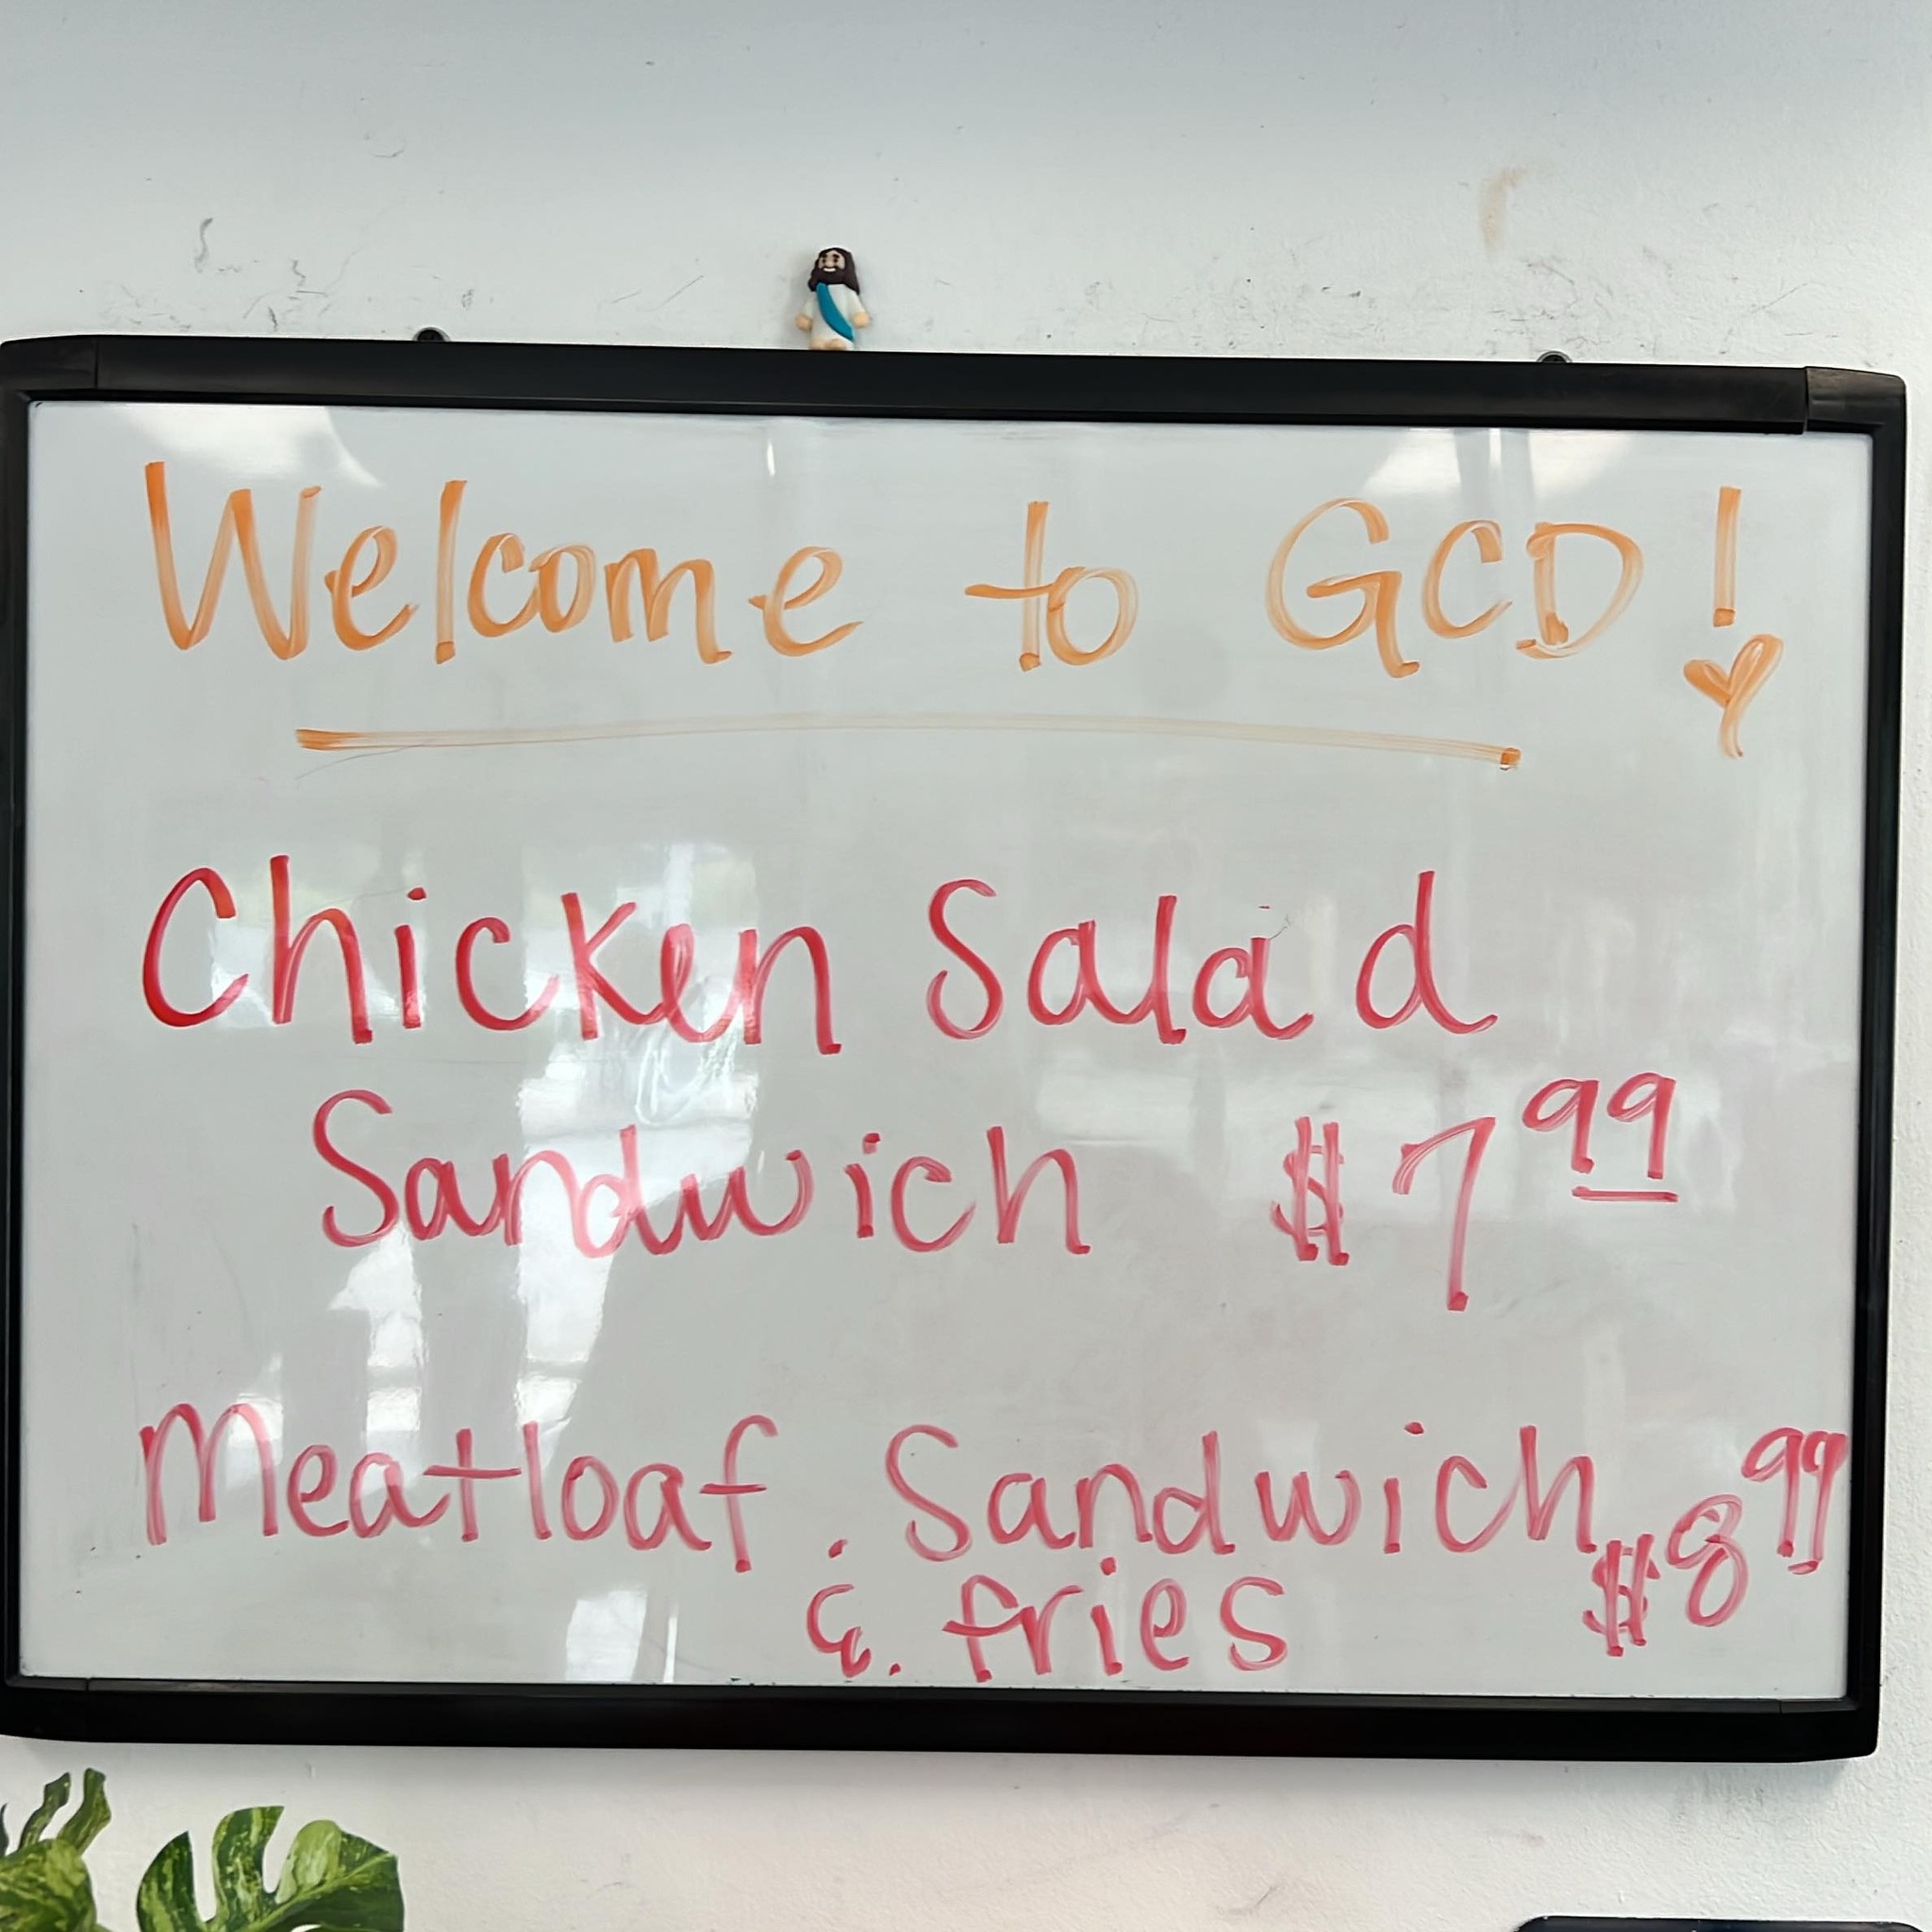 Welcome to GCD!
Chicken Salad
Sandwich $7 99
Meatloaf Sandwich $8 99
& fries